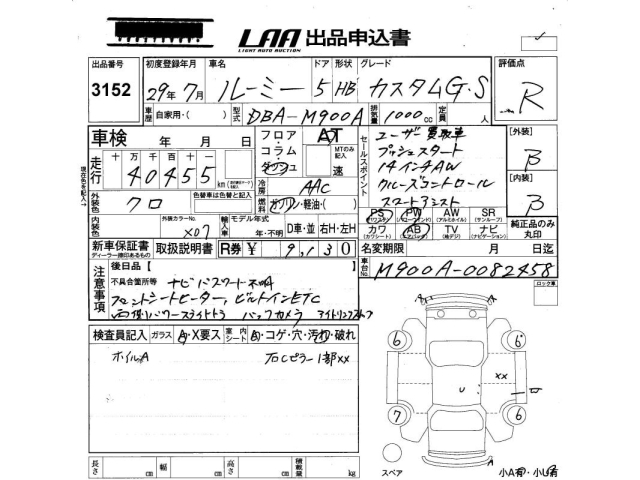 LAA 出品申込書
LIGHT AUTO AUCTION
出品番号 3152
初度登録年月 29年7月
車名 ルーミー
ドア 5 形状 HB
グレード カスタムG・S
評価点 R
車歴 自家用・( )
型式 DBA-M900A
排気量 1000cc 定員 人
車検 年 月 日
フロア・コラム・ダッシュ
AT
MTのみ記入 速
セールスポイント
ユーザー買取車
プッシュスタート
14インチAW
クルーズコントロール
スマートアシスト
[外装] B
[内装] B
走行 十万千百十
40455 km
冷房 AAC
燃料 ガソリン・軽油・( )
外装色 クロ
色替車は色替と記入
PS (パワステ) PW (パワーウインド) AW (アルミホイル) SR (サンルーフ)
カワ (カワシート) AB (エアバック) TV (地デジ) ナビ (ナビゲーション)
純正品のみ丸印
内装色
外装カラーNo. X07
輸入車 モデル年式 年・不明
D車・並 右H・左H
新車保証書 取扱説明書
ディーラー捺印あるもの
R券 ¥ 9,130
名変期限 月 日迄
車台No. M900A-0082458
ロック車
注意事項
後日品 [ ]
不具合箇所等 ナビパスワード不明
フロントシートヒーター、ビルトインETC
両側パワースライドドア バックカメラ アイドリングストップ
検査員記入 ガラス A・X要ス 室内シート 穴・コゲ・穴・汚れ・破れ
ホイルA
右Cピラー1部XX
6 6
7 6
U XX
A
スペア
小A有・小U有
長さ cm 幅 cm 高さ cm 積載量 kg